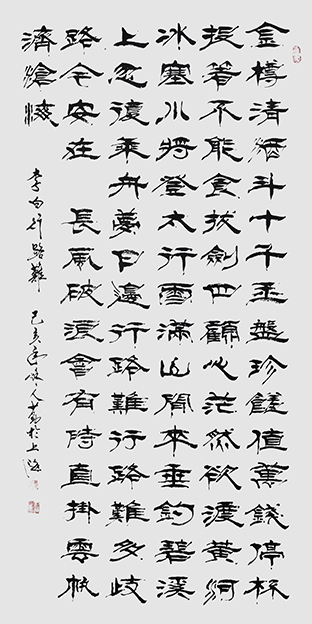 金樽清酒斗十千玉盤珍饈值萬錢停杯
投箸不能食拔劍四顧心茫然欲渡黃河
冰塞川將登太行雪滿山閒來垂釣碧溪
上忽復乘舟夢日邊行路難行路難多歧
路今安在 長風破浪會有時直掛雲帆
濟滄海
李白行路難 己亥年 於上海